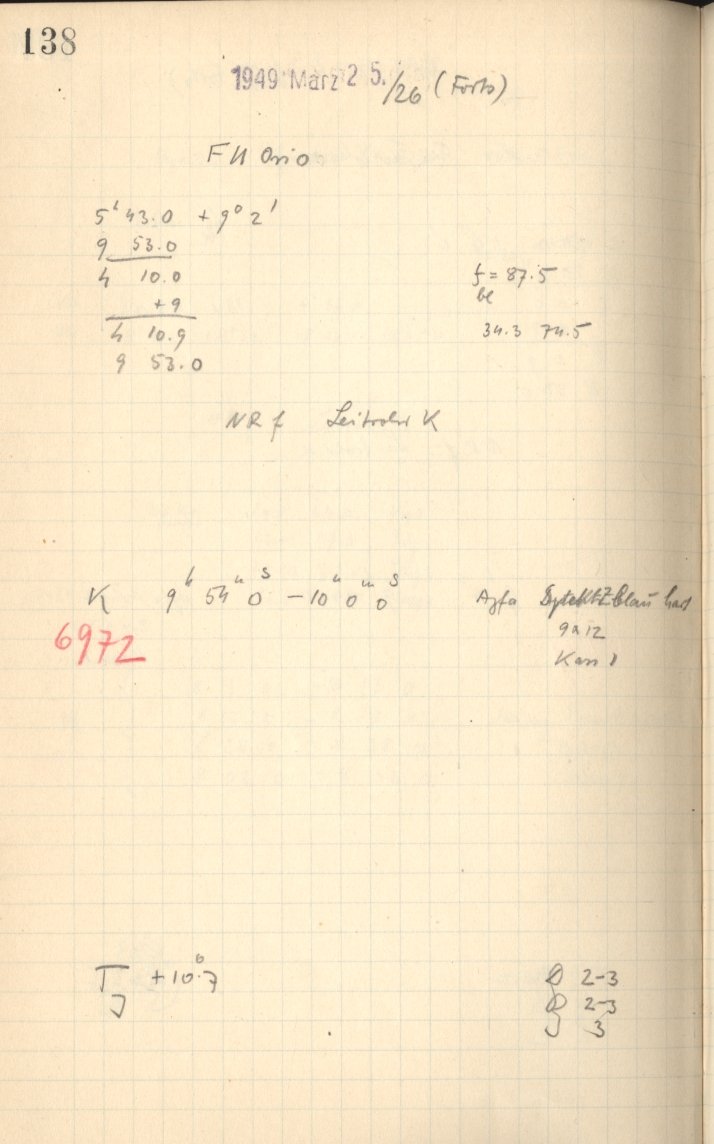 138
1949 März 25./26 (Forts)
FU Orio
5ʰ 43.0 + 9° 2'
9 53.0
4 10.0
+9
4 10.9
9 53.0
f = 87.5
be
34.3 74.5
NR f Leitrohr K
K 9ʰ 54ᵐ 0ˢ – 10ʰ 0ᵐ 0ˢ Agfa blau hart
6972
9x12
Kass 1
T +10°.7
J
D 2-3
R 2-3
J 3